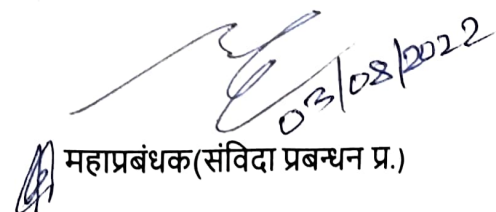 03/08/2022
महाप्रबंधक(संविदा प्रबन्धन प्र.)